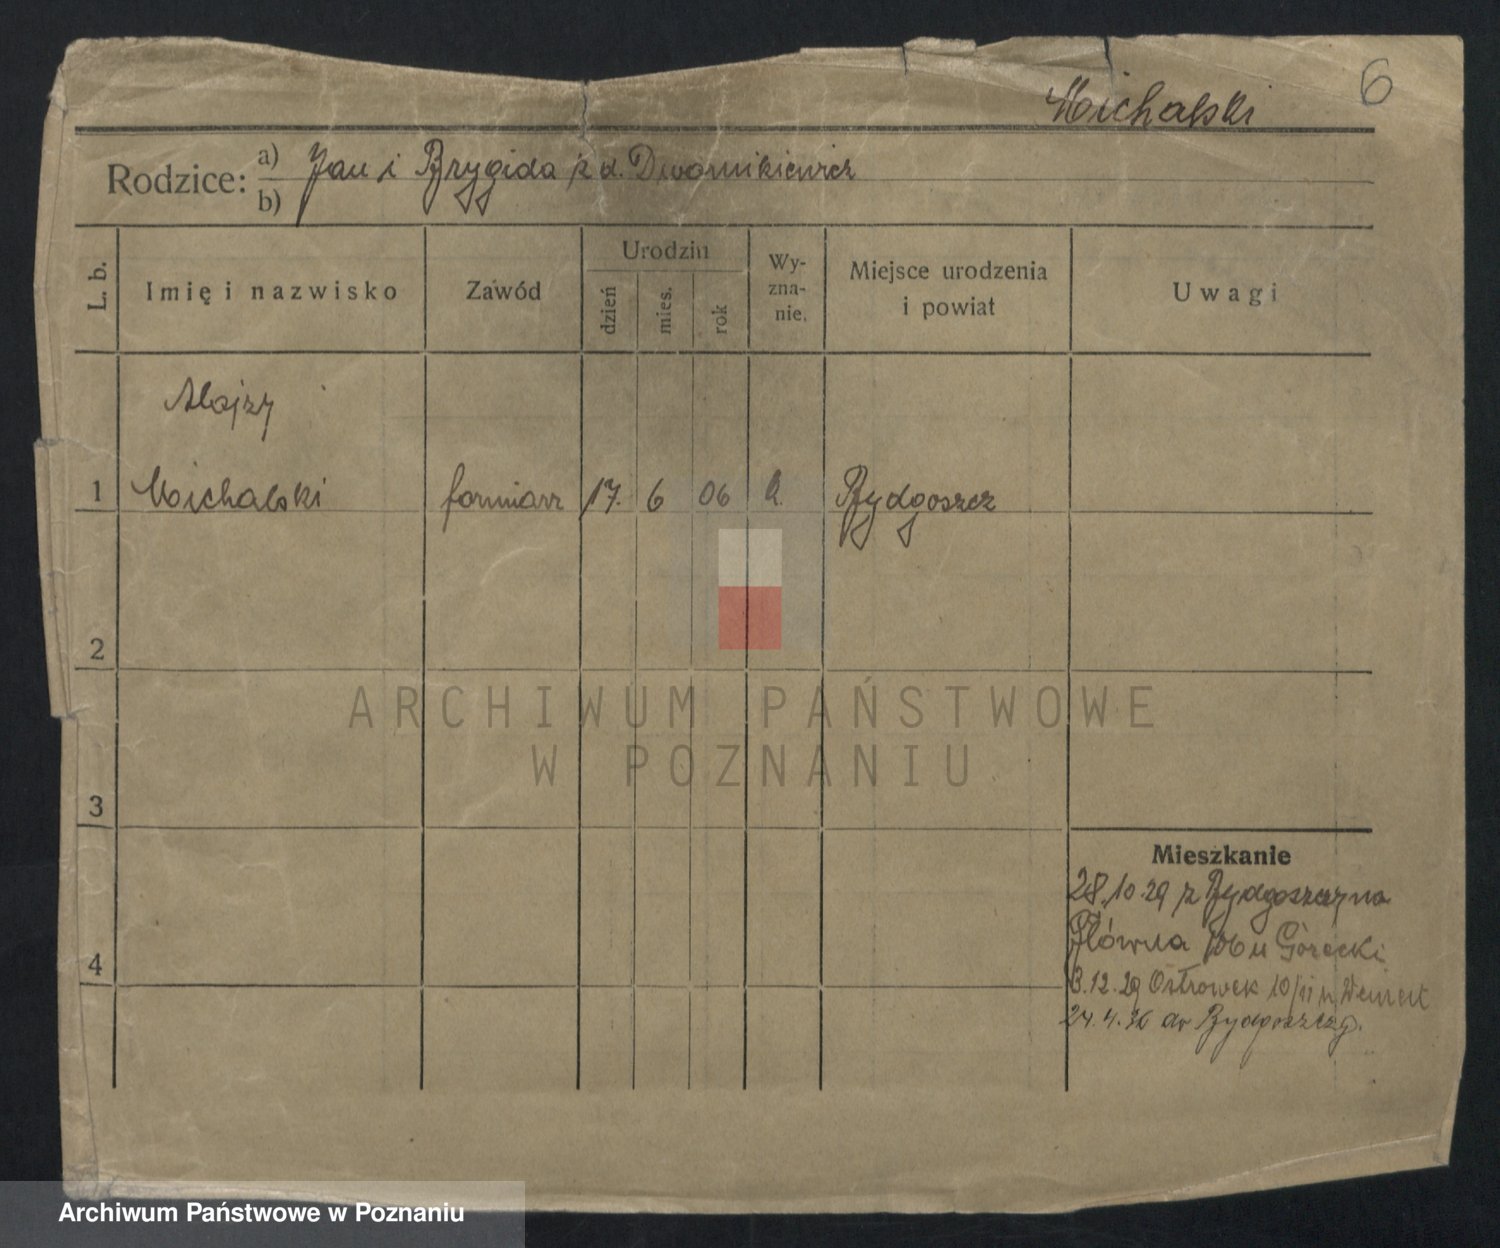 Michalski
6
Rodzice: a) Jan i Brygida z d. Dwornikiewicz
b)
L. b.
Imię i nazwisko
Zawód
Urodzin
dzień
mies.
rok
Wy-
zna-
nie.
Miejsce urodzenia
i powiat
Uwagi
Alojzy
1 Michalski formiarz 17. 6 06 Bydgoszcz
2
ARCHIWUM PAŃSTWOWE
W POZNANIU
3
Mieszkanie
28.10.29 z Bydgoszczy na
Główna u Górecki
4
3.12.29 Ostrówek 10/11
24.4. do Bydgoszczy.
Archiwum Państwowe w Poznaniu